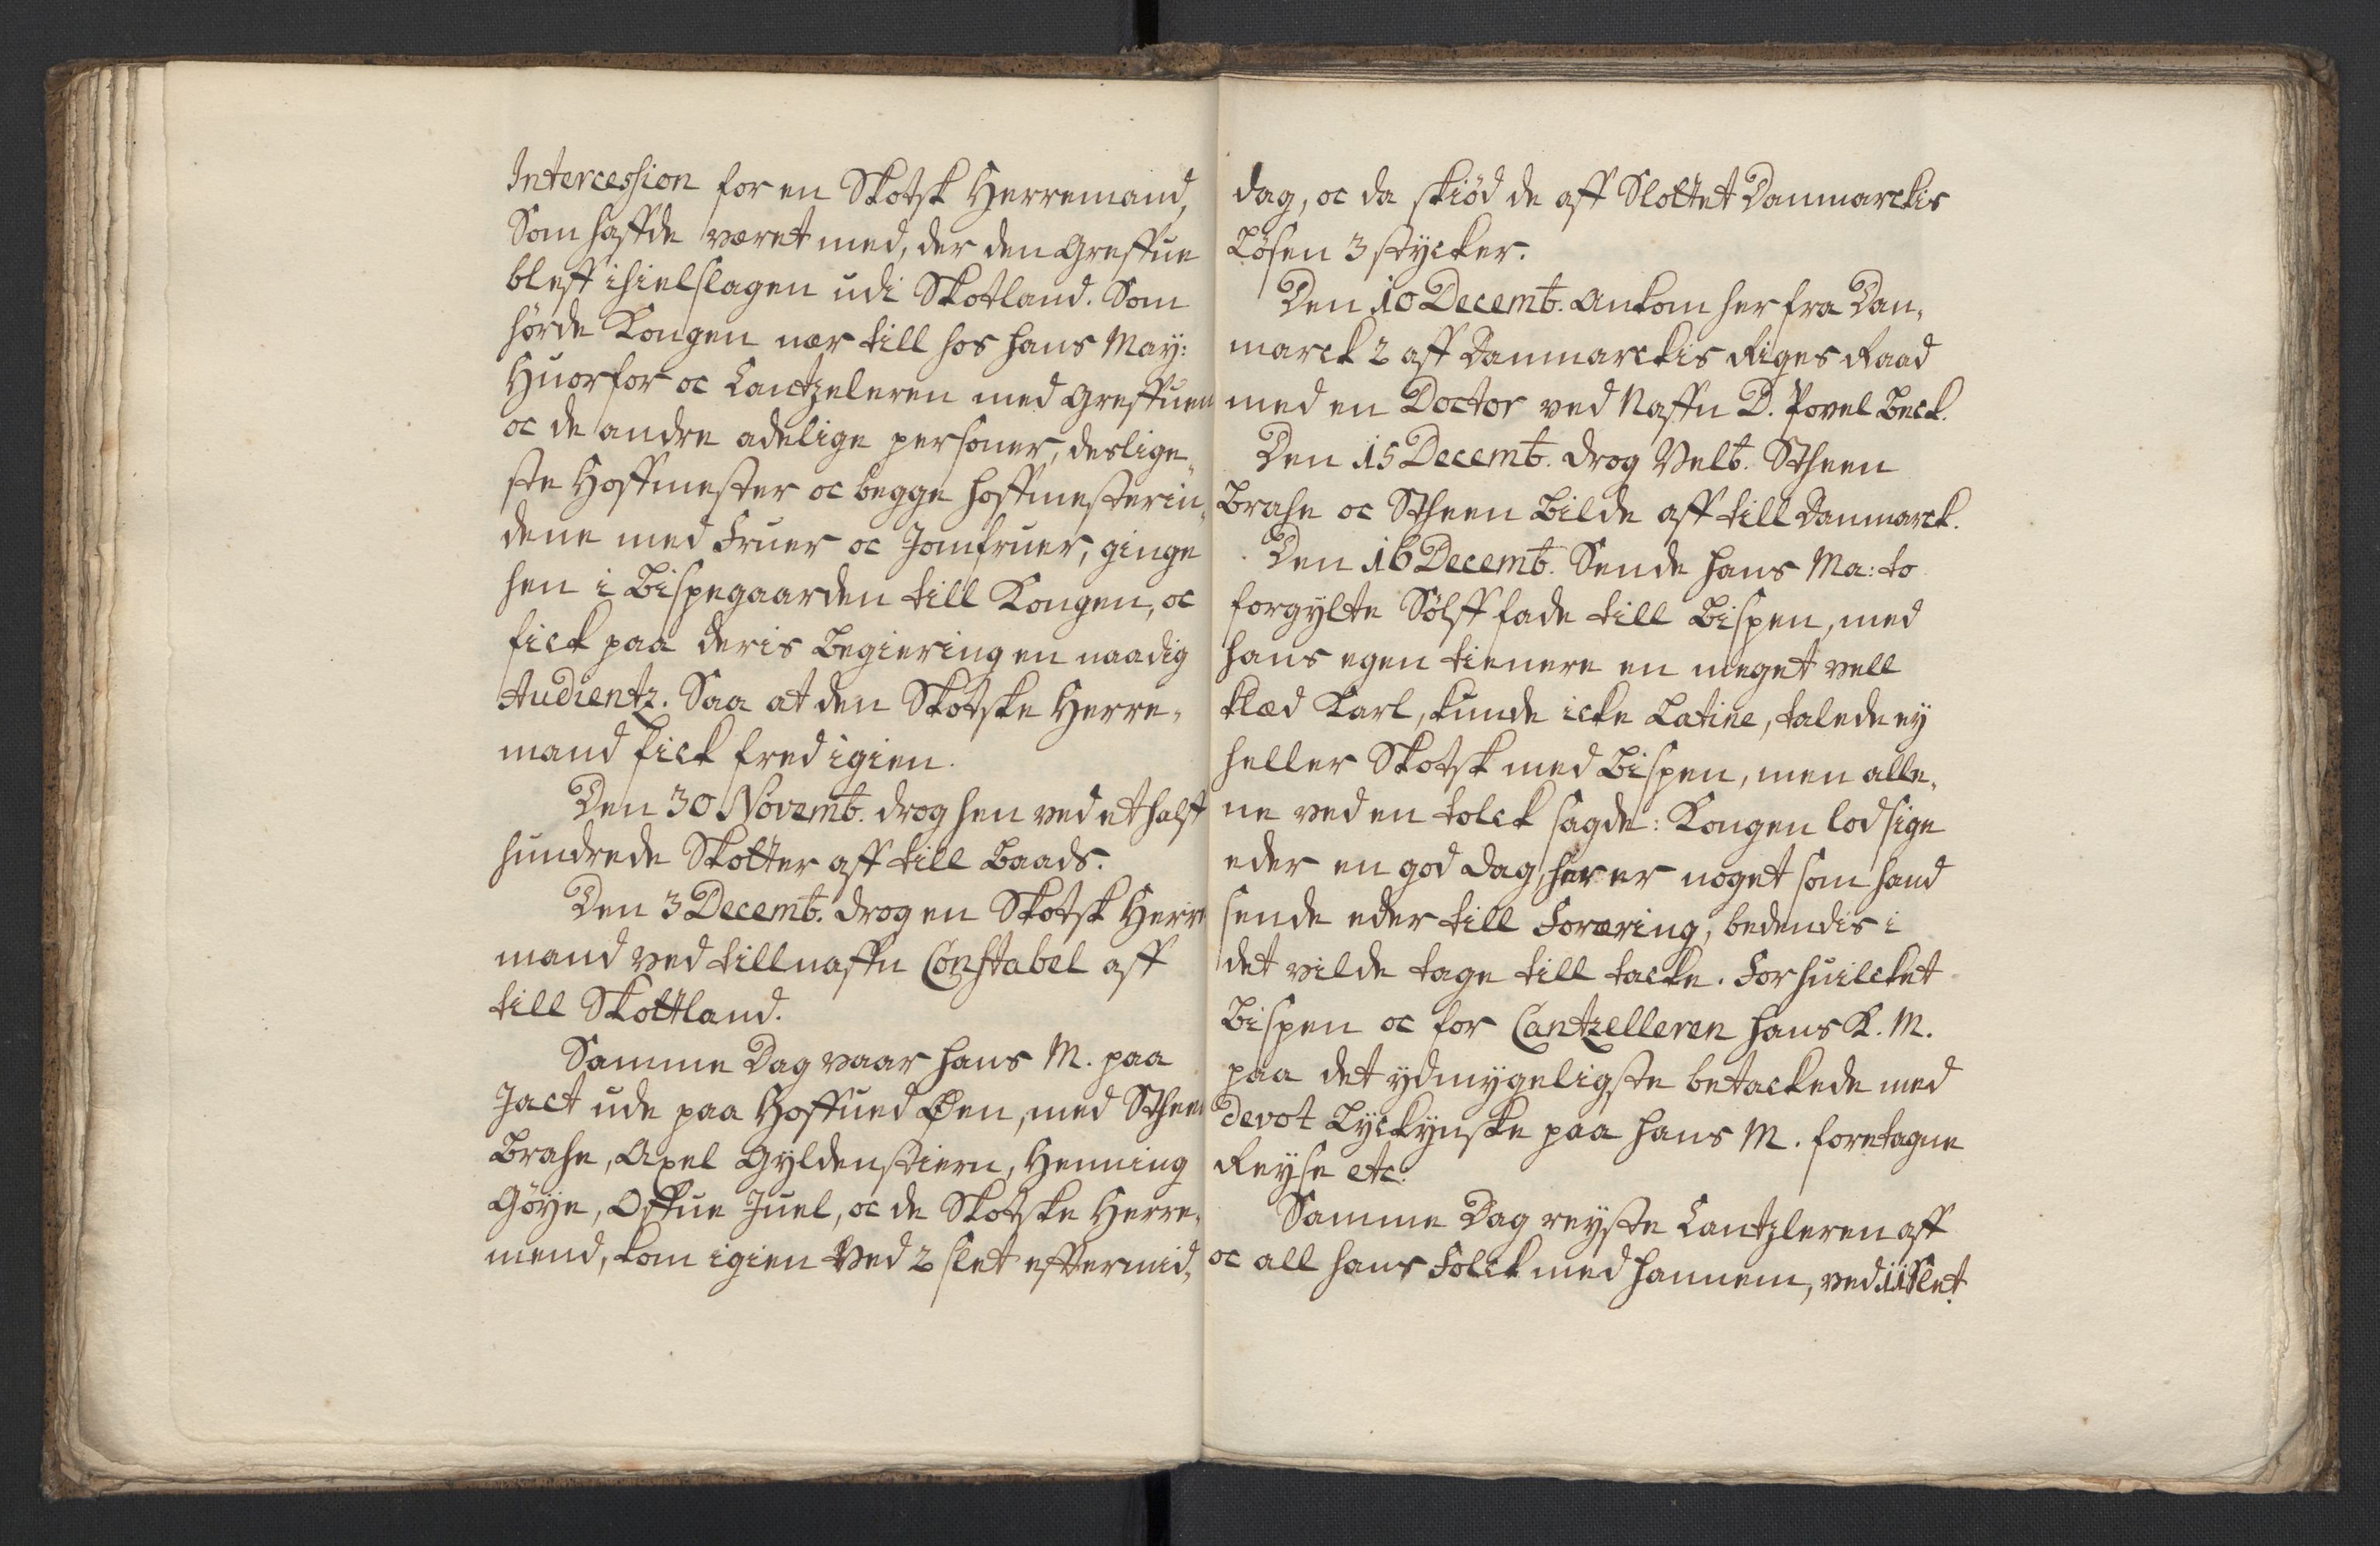 Intercession for en Skotsk Herremand,
Som haffde været med, der den Greffue
bleff ihielslagen udi Skotland. Som
hörde Kongen nær till hos hans May:
Huorfor oc Cantzeleren med Greffuen
oc de andre adelige personer, deslige„
ste Hoffmester oc begge hoffmesterin„
dene med Fruer oc Jomfruer, ginge
hen i Bispegaarden till Kongen, oc
fick paa deris Begiering en naadig
Audientz. Saa at den Skotske Herre„
mand fick fred igien.
Den 30 Novemb. drog hen ved et halff
hundrede Skotter aff till Baads.
Den 3 Decemb. drog en Skotsk Herre
mand ved tillnaffn Constabel aff
till Skottland.
Samme Dag vaar hans M. paa
Jact ude paa Hoffued Øen, med Stheen
Brahe, Axel Gyldenstiern, Henning
Göÿe, Offue Juel, oc de Skotske Herre„
mend, kom igien Ved 2 slet efftermid„
dag, oc da skiöd de aff Slottet Danmarckis
Lösen 3 stÿcker.
Den 10 Decemb. Ankom her fra Dan„
marck 2 aff Danmarckis Riges Raad
med en Doctor ved Naffn D. Povel Beck.
Den 15 Decemb. drog Velb. Stheen
Brahe oc Stheen Bilde aff till Danmarck.
Den 16 Decemb. Sende hans Ma: to
forgylte Sölff fade till Bispen, med
hans egen tienere en meget vell
klæd Karl, kunde icke Latine, talede eÿ
heller Skotsk med Bispen, men alle„
ne ved en tolck sagde: Kongen lod sige
eder en god Dag, her er noget som hand
sende eder till Foræring, bedendis i
det vilde tage till tacke. For huilcket
Bispen oc for Cantzelleren hans K. M.
paa det ydmygeligste betackede med
devot Lÿckÿnske paa hans M. foretagne
Reÿse etc.
Samme Dag reÿste Cantzleren aff
oc all hans Folck med hannem, ved 11 Slet